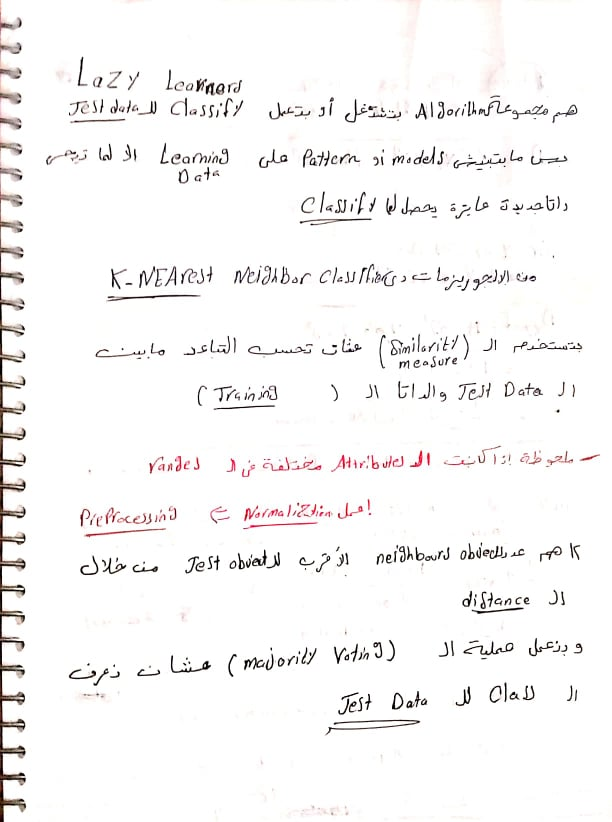 Lazy Learners
هم مجموعة Algorithms بتشتغل أو بتعمل Classify للـ Test data
بس مابتبنيش models أو Pattern على Learning Data الا لما تيجى
داتا جديدة عايزة يحصل لها Classify
من الالجوريزمات دى K-NEArest Neighbor Classifier
بتستخدم الـ (Similarity measure) عشان تحسب التباعد مابين
الـ Test Data والداتا الـ (Training)
- ملحوظة إذا كانت الـ Attributes مختلفة فى الـ ranges
اعمل Normaliztion ⇐ PreProcessing
K هم عدد الـ neighbours object الأقرب للـ Test object من خلال
الـ distance
وبنعمل عملية الـ (majority Voting) عشان نعرف
الـ Class للـ Test Data